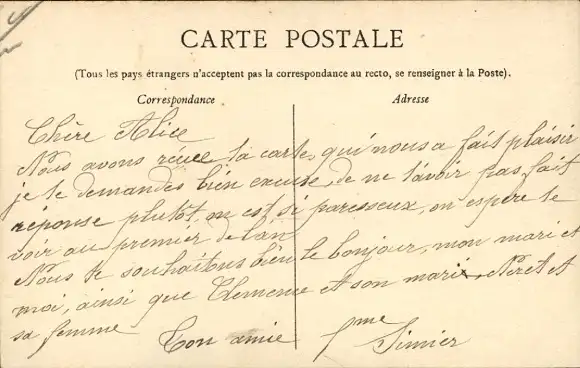 CARTE POSTALE
(Tous les pays étrangers n'acceptent pas la correspondance au recto, se renseigner à la Poste).
Correspondance
Adresse
Chère Alice
Nous avons réçue ta carte, qui nous a fait plaisir
je te demandes bien excuse, de ne t'avoir pas fait
réponse plutôt, on est si paresseux, on espère te
voir au premier de l'an
Nous te souhaitons bien le bonjour, mon mari et
moi, ainsi que Clemence et son mari, et
sa femme
Ton amie
Mme Simier